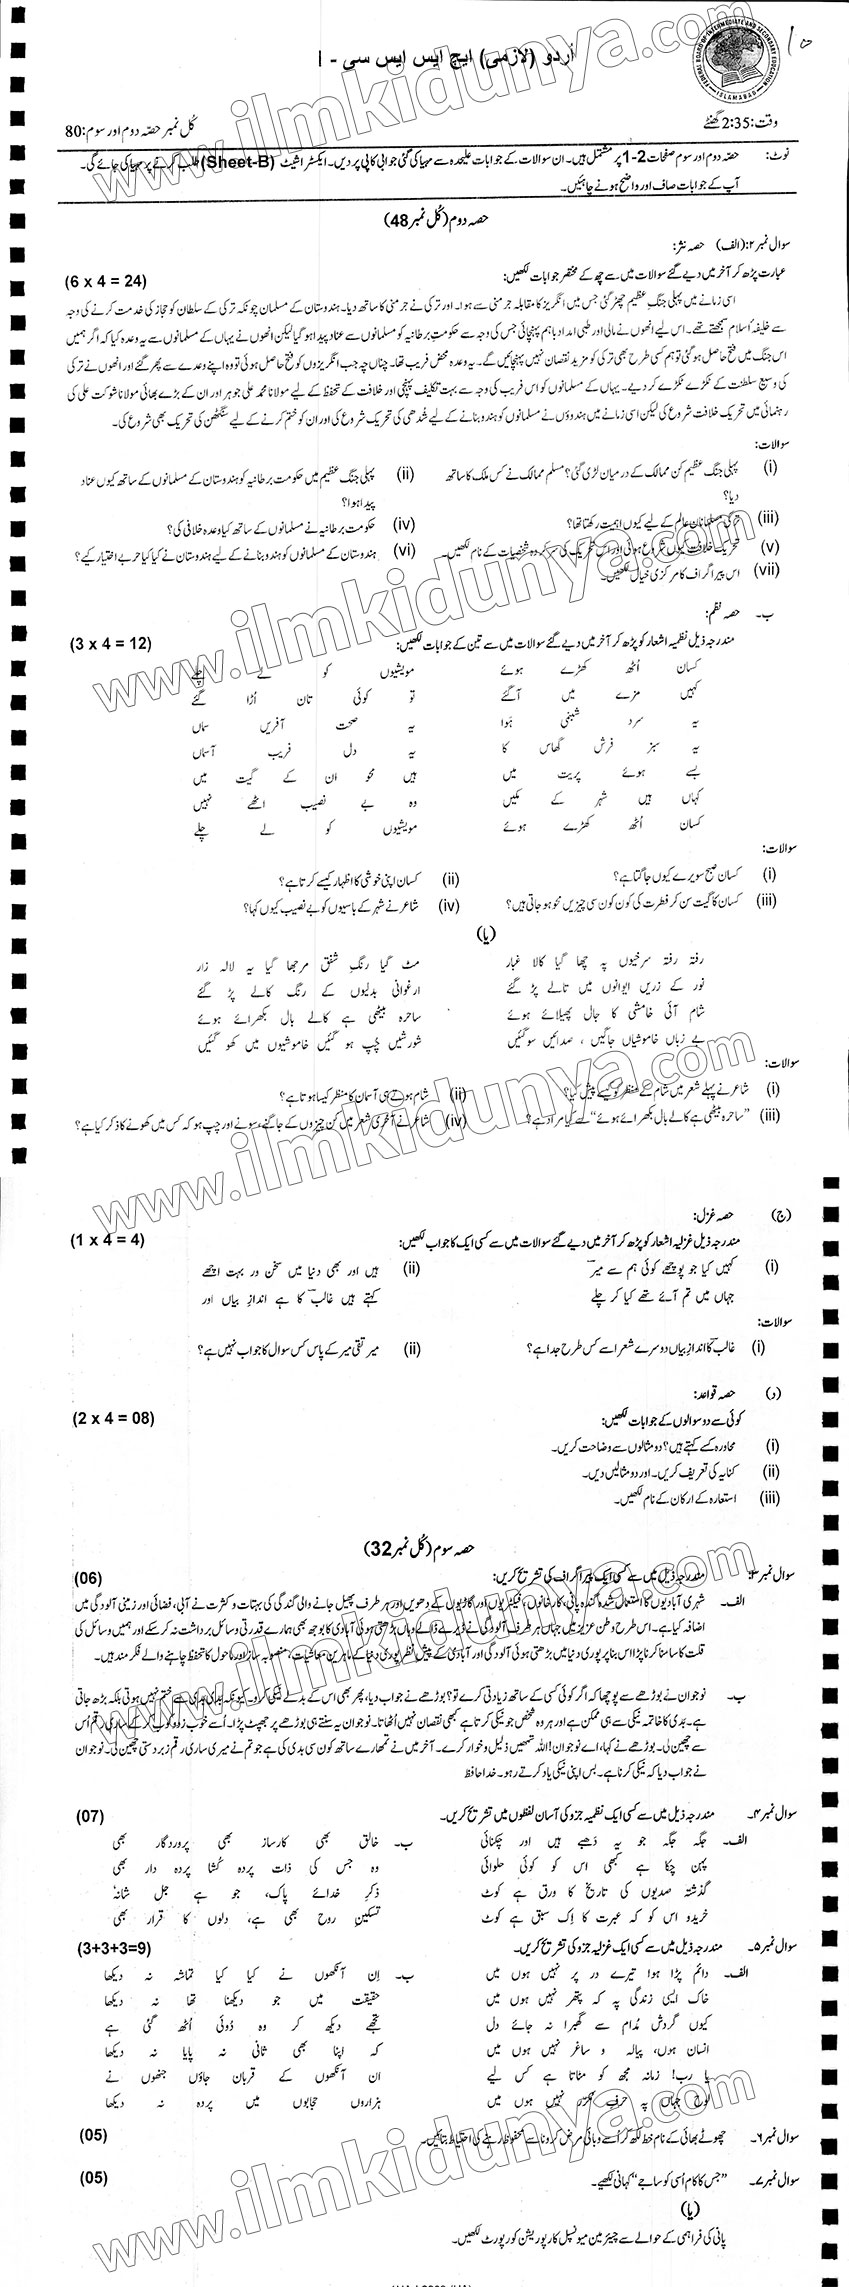 اُردو (لازمی) ایچ ایس ایس سی - I
وقت: 2:35 گھنٹے
کُل نمبر حصّہ دوم اور سوم: 80
نوٹ: حصّہ دوم اور سوم صفحات 2-1 پر مشتمل ہیں۔ ان سوالات کے جوابات علیحدہ سے مہیا کی گئی جوابی کاپی پر دیں۔ ایکسٹرا شیٹ (Sheet-B) طلب کرنے پر مہیا کی جائے گی۔
آپ کے جوابات صاف اور واضح ہونے چاہئیں۔
حصہ دوم (کُل نمبر 48)
سوال نمبر ۲: (الف) حصہ نثر:
عبارت پڑھ کر آخر میں دیے گئے سوالات میں سے چھ کے مختصر جوابات لکھیں: (6 x 4 = 24)
اسی زمانے میں پہلی جنگِ عظیم چھڑ گئی جس میں انگریز کا مقابلہ جرمنی سے ہوا۔ اور ترکی نے جرمنی کا ساتھ دیا۔ ہندوستان کے مسلمان چونکہ ترکی کے سلطان کو حجاز کی خدمت کرنے کی وجہ
سے خلیفۂ اسلام سمجھتے تھے۔ اس لیے انھوں نے مالی اور طبی امداد باہم پہنچائی جس کی وجہ سے حکومتِ برطانیہ کو مسلمانوں سے عناد پیدا ہو گیا لیکن انھوں نے یہاں کے مسلمانوں سے یہ وعدہ کیا کہ اگر ہمیں
اس جنگ میں فتح حاصل ہو گئی تو ہم کسی طرح بھی ترکی کو مزید نقصان نہیں پہنچائیں گے۔ یہ وعدہ محض فریب تھا۔ چناں چہ جب انگریزوں کو فتح حاصل ہوئی تو وہ اپنے وعدے سے پھر گئے اور انھوں نے ترکی
کی وسیع سلطنت کے ٹکڑے ٹکڑے کر دیے۔ یہاں کے مسلمانوں کو اس فریب کی وجہ سے بہت تکلیف پہنچی اور خلافت کے تحفظ کے لیے مولانا محمد علی جوہر اور ان کے بڑے بھائی مولانا شوکت علی کی
رہنمائی میں تحریک خلافت شروع کی لیکن اسی زمانے میں ہندوؤں نے مسلمانوں کو ہندو بنانے کے لیے شدھی کی تحریک شروع کی اور ان کو ختم کرنے کے لیے سنگٹھن کی تحریک بھی شروع کی۔
سوالات:
(i) پہلی جنگ عظیم کن ممالک کے درمیان لڑی گئی؟ مسلم ممالک نے کس ملک کا ساتھ دیا؟
(ii) پہلی جنگ عظیم میں حکومت برطانیہ کو ہندوستان کے مسلمانوں کے ساتھ کیوں عناد پیدا ہوا؟
(iii) ترکی مسلمانان عالم کے لیے کیوں اہمیت رکھتا تھا؟
(iv) حکومت برطانیہ نے مسلمانوں کے ساتھ کیا وعدہ خلافی کی؟
(v) تحریک خلافت کیوں شروع ہوئی اور اس تحریک کی سرکردہ شخصیات کے نام لکھیں۔
(vi) ہندوستان کے مسلمانوں کو ہندو بنانے کے لیے ہندوستان نے کیا کیا حربے اختیار کیے؟
(vii) اس پیراگراف کا مرکزی خیال لکھیں۔
ب۔ حصہ نظم:
مندرجہ ذیل نظمیہ اشعار کو پڑھ کر آخر میں دیے گئے سوالات میں سے تین کے جوابات لکھیں: (3 x 4 = 12)
کسان اُٹھ کھڑے ہوئے مویشیوں کو لے چلے
کہیں مزے میں آ گئے تو کوئی تان اُڑا گئے
یہ سرد شبنمی ہَوا یہ صحت آفریں سماں
یہ سبز فرش گھاس کا یہ دل فریب آسماں
بسے ہوئے پریت میں ہیں محو ان کے گیت میں
کہاں ہیں شہر کے مکیں وہ بے نصیب اٹھے نہیں
کسان اُٹھ کھڑے ہوئے مویشیوں کو لے چلے
سوالات:
(i) کسان صبح سویرے کیوں جاگتا ہے؟
(ii) کسان اپنی خوشی کا اظہار کیسے کرتا ہے؟
(iii) کسان کا گیت سن کر فطرت کی کون کون سی چیزیں محو ہو جاتی ہیں؟
(iv) شاعر نے شہر کے باسیوں کو بے نصیب کیوں کہا؟
(یا)
رفتہ رفتہ سرخیوں پہ چھا گیا کالا غبار مٹ گیا رنگِ شفق مرجھا گیا یہ لالہ زار
نور کے زریں ایوانوں میں تالے پڑ گئے ارغوانی بدلیوں کے رنگ کالے پڑ گئے
شام آئی خامشی کا جال پھیلائے ہوئے ساحرہ بیٹھی ہے کالے بال بکھرائے ہوئے
بے زباں خاموشیاں جاگیں، صدائیں سو گئیں شورشیں چُپ ہو گئیں خاموشیوں میں کھو گئیں
سوالات:
(i) شاعر نے پہلے شعر میں شام کے منظر کو کیسے پیش کیا؟
(ii) شام ہوتے ہی آسمان کا منظر کیسا ہوتا ہے؟
(iii) ”ساحرہ بیٹھی ہے کالے بال بکھرائے ہوئے“ سے کیا مراد ہے؟
(iv) شاعر نے آخری شعر میں کن چیزوں کے جاگنے، سونے اور چپ ہو کہ کس میں کھونے کا ذکر کیا ہے؟
(ج) حصہ غزل:
مندرجہ ذیل غزلیہ اشعار کو پڑھ کر آخر میں دیے گئے سوالات میں سے کسی ایک کا جواب لکھیں: (1 x 4 = 4)
(i) کہیں کیا جو پوچھے کوئی ہم سے میرؔ
جہاں میں تم آئے تھے کیا کر چلے
(ii) ہیں اور بھی دنیا میں سخن ور بہت اچھے
کہتے ہیں غالبؔ کا ہے اندازِ بیاں اور
سوالات:
(i) غالبؔ کا اندازِ بیاں دوسرے شعرا سے کس طرح جدا ہے؟
(ii) میر تقی میر کے پاس کس سوال کا جواب نہیں ہے؟
(د) حصہ قواعد:
کوئی سے دو سوالوں کے جوابات لکھیں: (2 x 4 = 08)
(i) محاورہ کسے کہتے ہیں؟ دو مثالوں سے وضاحت کریں۔
(ii) کنایہ کی تعریف کریں۔ اور دو مثالیں دیں۔
(iii) استعارہ کے ارکان کے نام لکھیں۔
حصہ سوم (کُل نمبر 32)
سوال نمبر ۳۔ مندرجہ ذیل میں سے کسی ایک پیراگراف کی تشریح کریں: (06)
الف۔ شہری آبادیوں کا استعمال شدہ گندہ پانی، کارخانوں، فیکٹریوں اور گاڑیوں کے دھویں اور ہر طرف پھیل جانے والی گندگی کی بہتات و کثرت نے آبی، فضائی اور زمینی آلودگی میں
اضافہ کیا ہے۔ اس طرح وطن عزیز میں جہاں ہر طرف آلودگی نے ڈیرے ڈالے وہاں بڑھتی ہوئی آبادی کا بوجھ بھی ہمارے قدرتی وسائل برداشت نہ کر سکے اور ہمیں وسائل کی
قلت کا سامنا کرنا پڑا اس بنا پر پوری دنیا میں بڑھتی ہوئی آلودگی اور آبادی کے پیش نظر پوری دنیا کے ماہرین معاشیات، منصوبہ ساز اور ماحول کا تحفظ چاہنے والے فکر مند ہیں۔
ب۔ نوجوان نے بوڑھے سے پوچھا کہ اگر کوئی کسی کے ساتھ زیادتی کرے تو؟ بوڑھے نے جواب دیا، پھر بھی اس کے بدلے نیکی کرو۔ کیونکہ بدی بدی سے ختم نہیں ہوتی بلکہ بڑھ جاتی
ہے۔ بدی کا خاتمہ نیکی سے ہی ممکن ہے اور ہر وہ شخص جو نیکی کرتا ہے کبھی نقصان نہیں اُٹھاتا۔ نوجوان یہ سنتے ہی بوڑھے پر جھپٹ پڑا۔ اُسے خوب زدوکوب کر کے ساری رقم اُس
سے چھین لی۔ بوڑھے نے کہا، اے نوجوان! اللہ تمھیں ذلیل و خوار کرے۔ آخر میں نے تمھارے ساتھ کون سی بدی کی ہے جو تم نے میری ساری رقم زبردستی چھین لی۔ نوجوان
نے جواب دیا کہ نیکی کرنا ہے۔ بس اپنی نیکی یاد کرتے رہو۔ خدا حافظ
سوال نمبر ۴۔ مندرجہ ذیل میں سے کسی ایک نظمیہ جزو کی آسان لفظوں میں تشریح کریں۔ (07)
الف۔ جگہ جگہ جو یہ دَھبے ہیں اور چکنائی
پہن چکا ہے کبھی اس کو کوئی حلوائی
گذشتہ صدیوں کی تاریخ کا ورق ہے کوٹ
خریدو اس کو کہ عبرت کا اِک سبق ہے کوٹ
ب۔ خالق بھی کارساز بھی پروردگار بھی
وہ جس کی ذات پردہ کُشا پردہ دار بھی
ذکرِ خدائے پاک، جو ہے جل شانہٗ
تسکینِ روح بھی ہے، دلوں کا قرار بھی
سوال نمبر ۵۔ مندرجہ ذیل میں سے کسی ایک غزلیہ جزو کی تشریح کریں۔ (3+3+3=9)
الف۔ دائم پڑا ہوا تیرے در پر نہیں ہوں میں
خاک ایسی زندگی پہ کہ پتھر نہیں ہوں میں
کیوں گردشِ مُدام سے گھبرا نہ جائے دل
انسان ہوں، پیالہ و ساغر نہیں ہوں میں
یا رب! زمانہ مجھ کو مٹاتا ہے کس لیے
لوحِ جہاں پہ حرفِ مکرّر نہیں ہوں میں
ب۔ اِن آنکھوں نے کیا کیا تماشہ نہ دیکھا
حقیقت میں جو دیکھنا تھا نہ دیکھا
تجھے دیکھ کر وہ دُوئی اُٹھ گئی ہے
کہ اپنا بھی ثانی نہ پایا نہ دیکھا
ان آنکھوں کے قربان جاؤں جنھوں نے
ہزاروں حجابوں میں پردہ نہ دیکھا
سوال نمبر ۶۔ چھوٹے بھائی کے نام خط لکھ کر اُسے وبائی مرض کرونا سے محفوظ رہنے کی احتیاط بتائیں۔ (05)
سوال نمبر ۷۔ ”جس کا کام اُسی کو ساجے“ کہانی لکھیے۔ (05)
(یا)
پانی کی فراہمی کے حوالے سے چیئرمین میونسپل کارپوریشن کو رپورٹ لکھیں۔
www.ilmkidunya.com
www.ilmkidunya.com
www.ilmkidunya.com
www.ilmkidunya.com
www.ilmkidunya.com